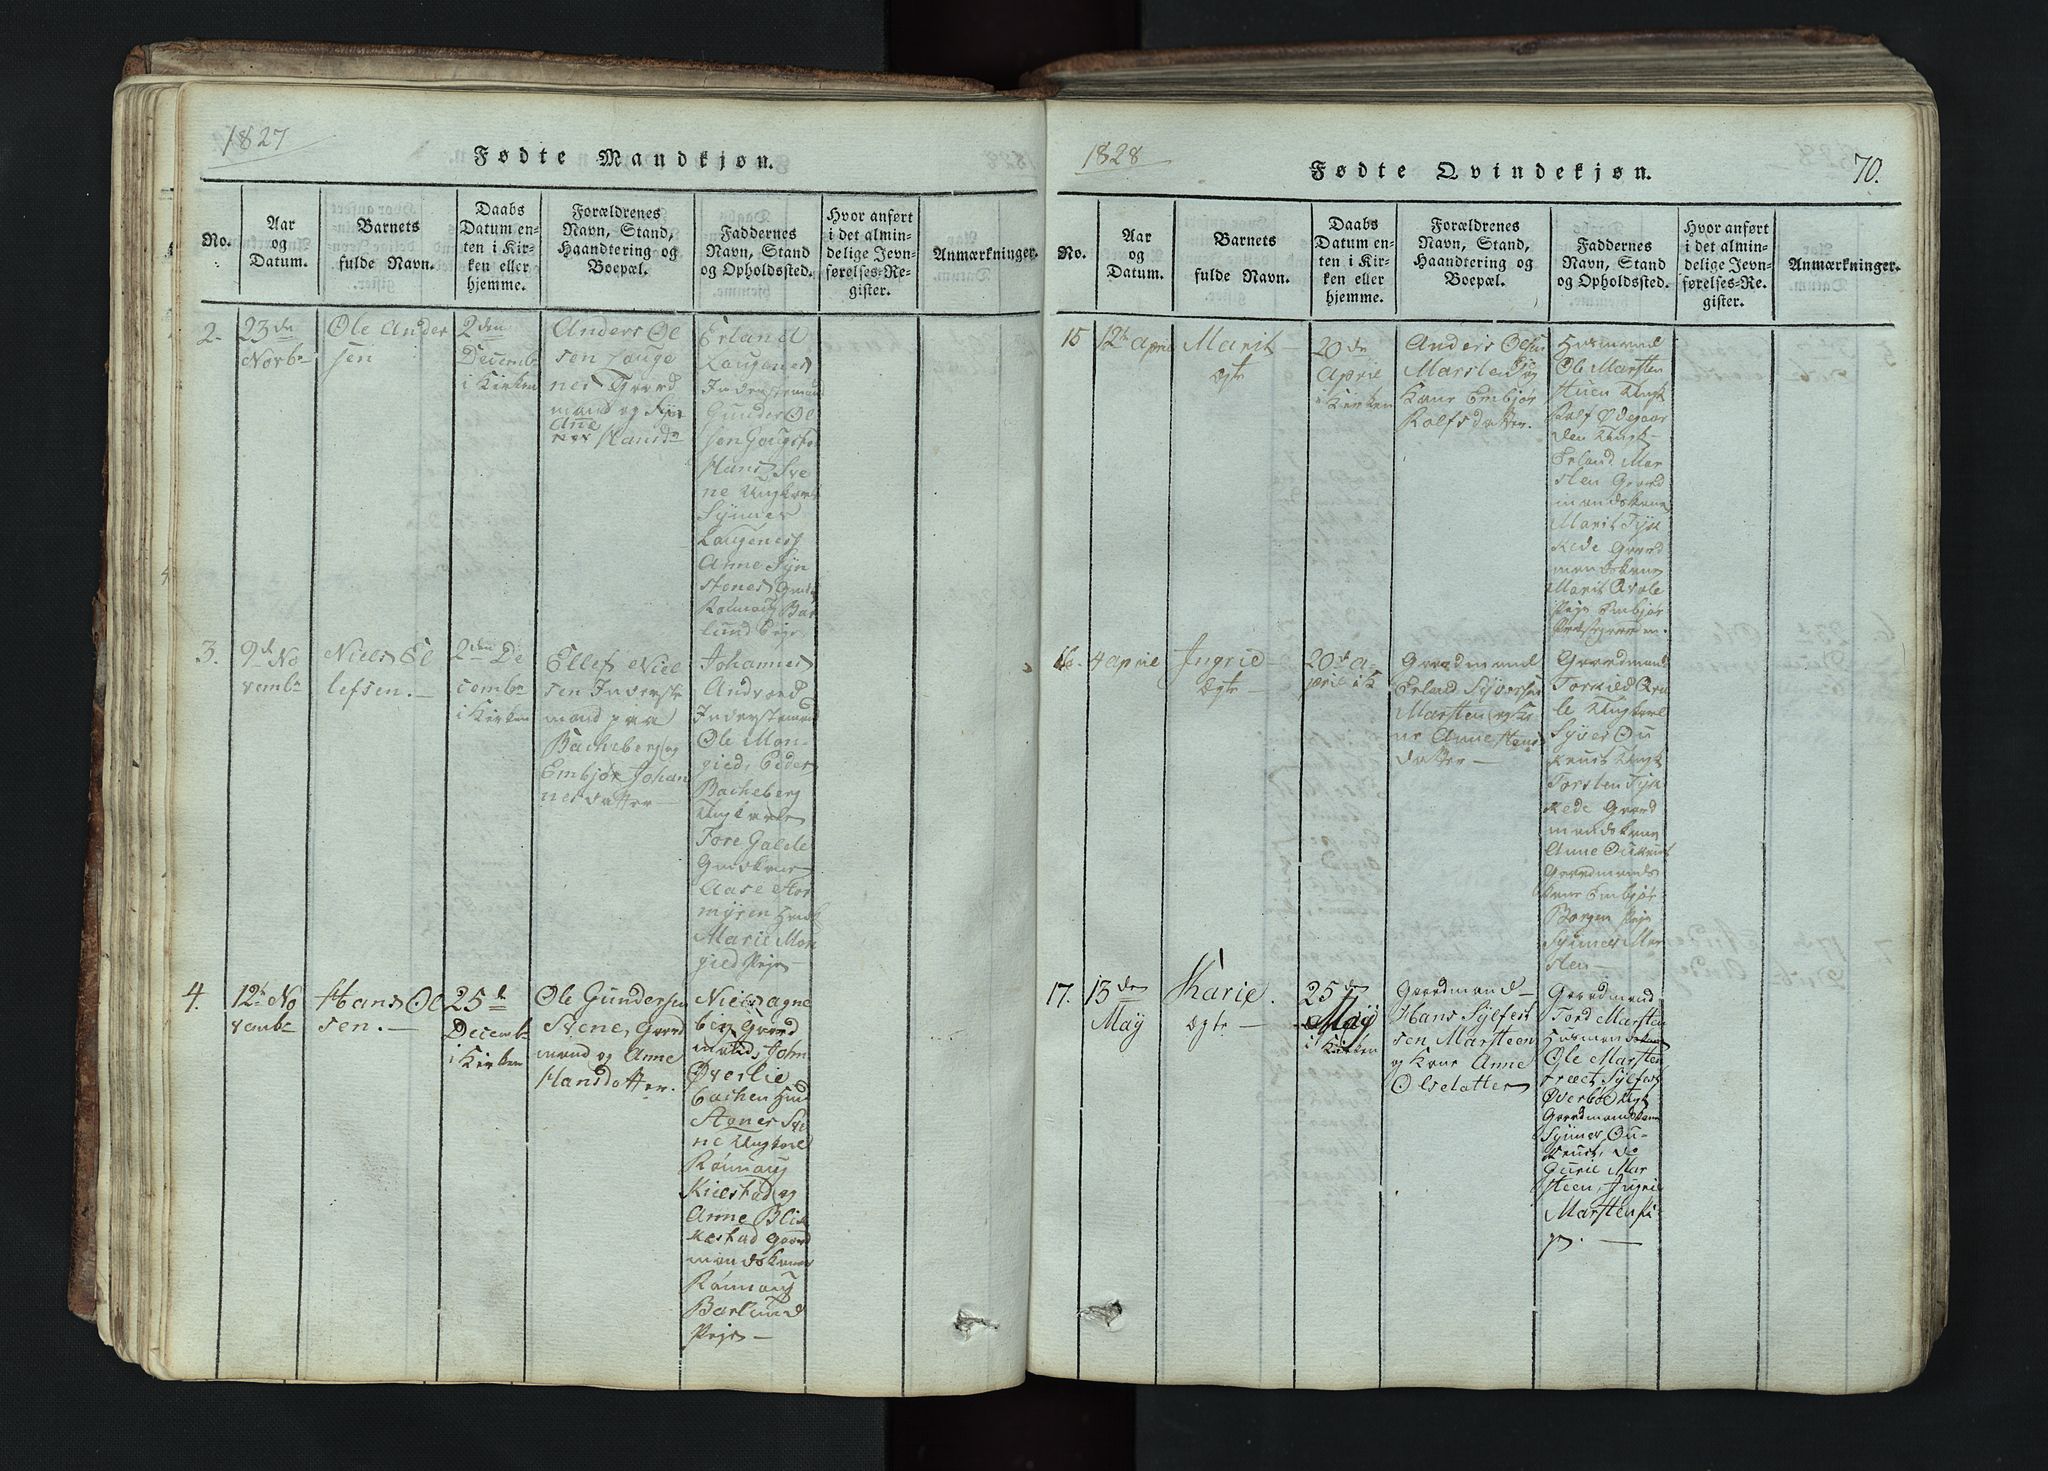 1827
Fødte Mandkjøn.
No.
Aar
og
Datum.
Barnets
fulde Navn.
Daabs
Datum en-
ten i Kir-
ken eller
hjemme.
Forældrenes
Navn, Stand,
Haandtering og
Boepæl.
Faddernes
Navn, Stand
og Opholdssted.
Hvor anført
i det almin-
delige Jevn-
førelses-Re-
gister.
Anmærkninger.
2.
23de
Novbr
Ole Ander
sen
2den
Decembr
i Kirken
Anders Ol
sen Lauge
nes Gaard
mand og
Ane
Hansdr
Erland
Laugenes
Inderstemand
Gunder Ol
sen
Hans Sve
ne Ungkarl
Synnev
Laugenes
Anne Syn
stenes
Rønnaug Bar
lund Pige
3.
9d No
vembr
Niels El
lefsen.
2den De
cembr
i Kirken
Ellef Niel
sen Inderste
mand paa
Bacheberg og
Embjør Johan
nesdatter
Johannes
Andvord
Inderstemand
Ole Mon-
gied, Peder
Bacheberg
Ungkarle
Tore Galde
Aase Stor
myren
Marie Mon
gied Pige
4.
12te No
vembr
Hans Ol
sen.
25de
Decembr
i Kirken
Ole Gundersen
Svene, Gaard
mand og Anne
Hansdatter.
Niels Agne
berg Gaard
mand, John
Øverlie
bachen
Svi
ne Ungkarl
Rønnaug
Kielstad og
Anne Blik
kestad Gaard
mandskoner
Rønnaug
Barlund
Pige
1828
Fødte Qvindekjøn.
70.
No.
Aar
og
Datum.
Barnets
fulde Navn.
Daabs
Datum en-
ten i Kir-
ken eller
hjemme.
Forældrenes
Navn, Stand,
Haandtering og
Boepæl.
Faddernes
Navn, Stand
og Opholdssted.
Hvor anført
i det almin-
delige Jevn-
førelses-Re-
gister.
Anmærkninger.
15
12te April
Marit
Ægte
20de
April
i Kirken
Anders Olsen
Marsten og
Kone Embjør
Rolfsdatter.
Husmand
Ole Marsten
Rolf Ødegaar
den Ungk
Erland Mar
sten Gaard
mandskone
Marit Tyk
Gaard
mandskone
Marit Qvale
Pige Embjør
Præstegaarden.
16.
4 April
Ingrie
Ægte
20de A-
pril i K
Gaardmand
Erland Syversen
Marsten og Ko
ne Anne Hans
datter
Gaardmand
Torkild Qva
le Ungkarl
Syver Ou
Ungk
Torsten Tyk
Gaard
mandskone
Anne
Gaardmands
kone Embjør
Borgen Pige
Synnev Mar
sten
17.
13de
May
Karie.
Ægte
25de
May
i Kirken
Gaardmand
Hans Sylfest
sen Marsteen
og Kone Anne
Olsdatter
Gaardmand
Tord Marsten
Husmand
Ole Marsten
Sylfest
Øverbøe Ungk
Gaardmandskone
Synnev Ou-
do
Gurie Mar
steen, Ingrie
Marsten Pi
ge.